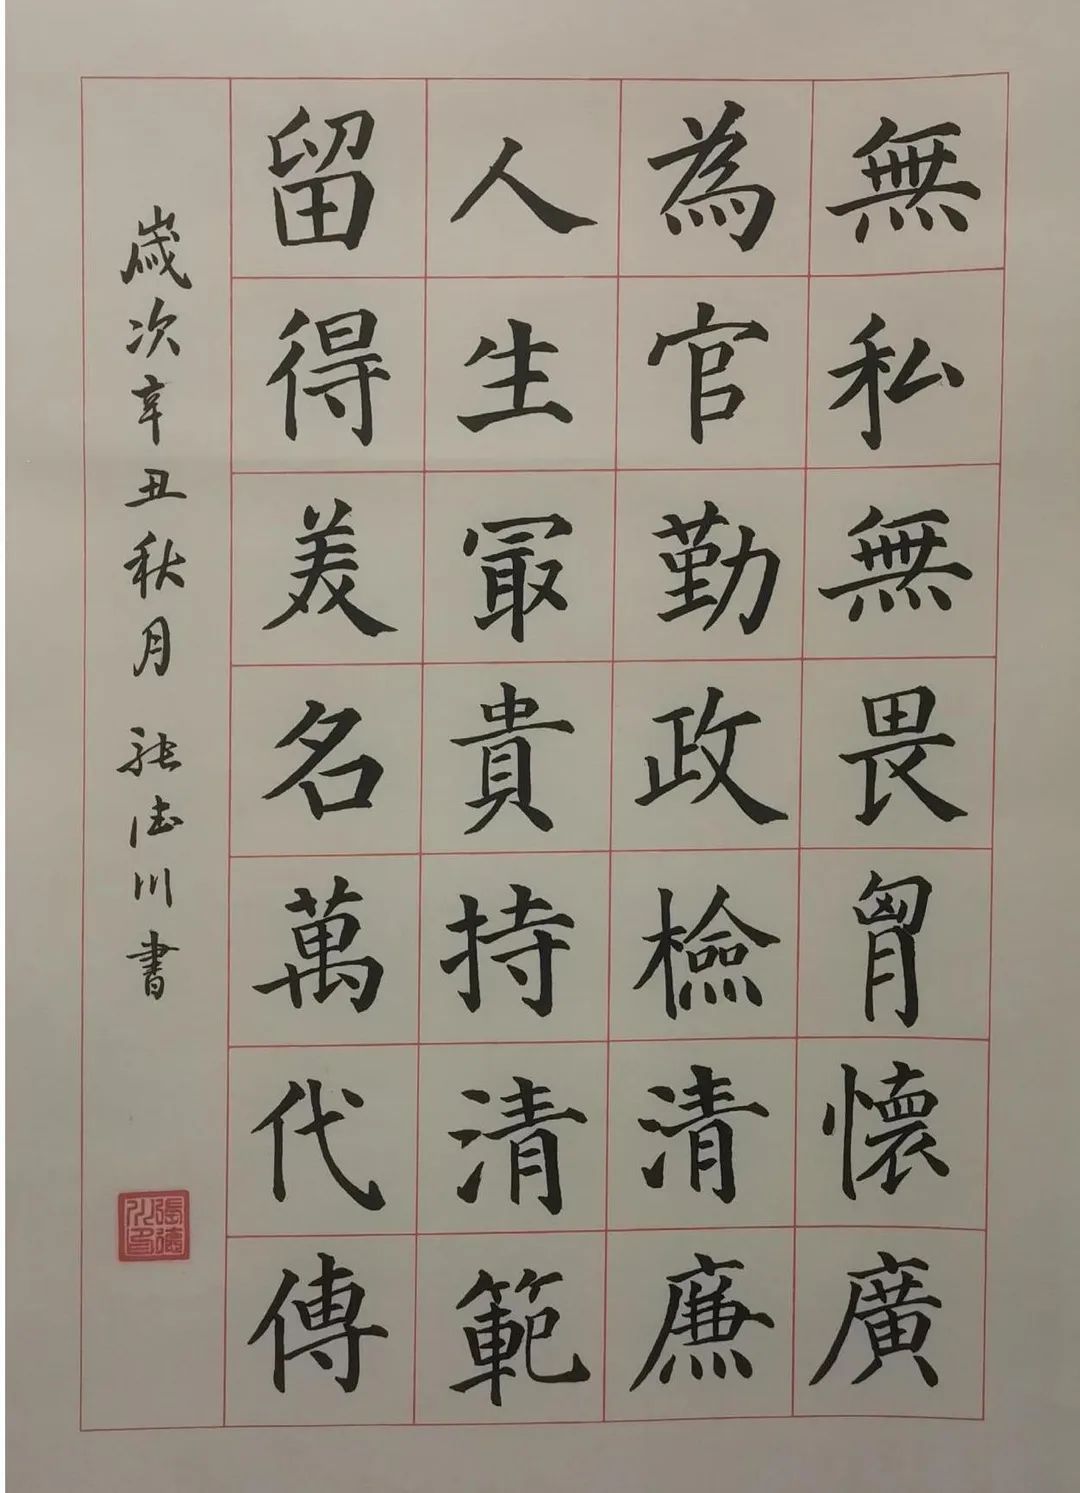 無私無畏胷懷廣
為官勤政檢清廉
人生冣貴持清範
留得美名萬代傳
歲次辛丑秋月 張德川書
張德川印